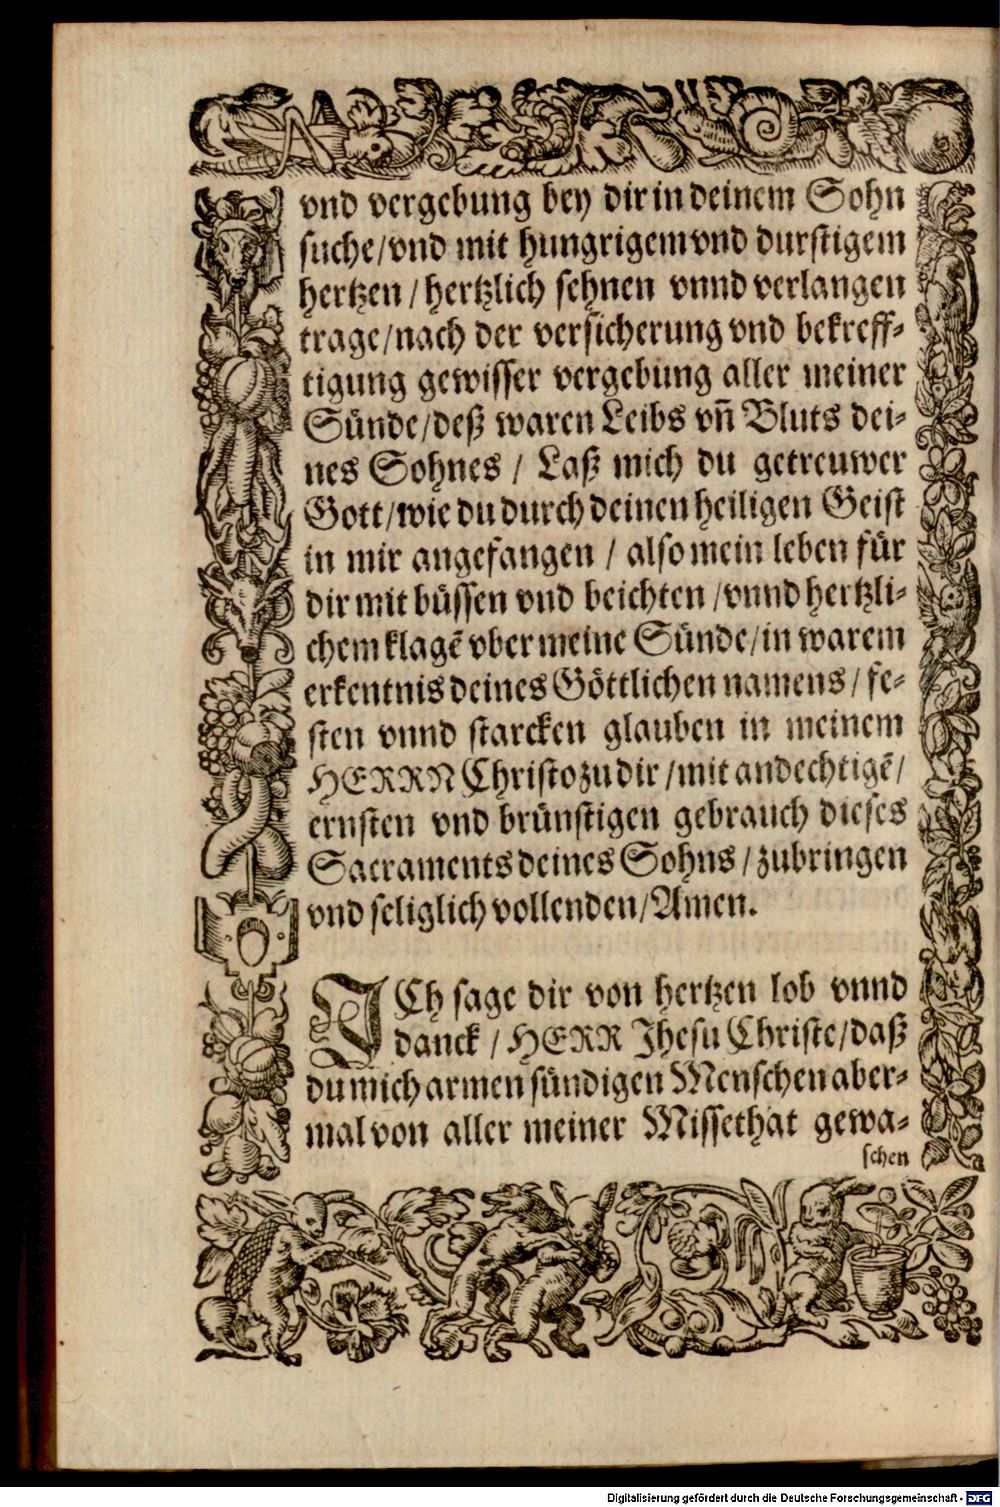 vnd vergebung bey dir in deinem Sohn
suche/vnd mit hungrigem vnd durstigem
hertzen / hertzlich sehnen vnnd verlangen
trage/nach der versicherung vnd bekreff-
tigung gewisser vergebung aller meiner
Sünde/deß waren Leibs vn̄ Bluts dei-
nes Sohnes / Laß mich du getreuwer
Gott/wie du durch deinen heiligen Geist
in mir angefangen / also mein leben für
dir mit büssen vnd beichten /vnnd hertzli-
chem klagē vber meine Sünde/in warem
erkentnis deines Göttlichen namens / fe-
sten vnnd starcken glauben in meinem
HERRN Christo zu dir /mit andechtigē/
ernsten vnd brünstigen gebrauch dieses
Sacraments deines Sohns / zubringen
vnd seliglich vollenden/Amen.
ICh sage dir von hertzen lob vnnd
danck / HERR Jhesu Christe/daß
du mich armen sündigen Menschen aber-
mal von aller meiner Missethat gewa-
schen
Digitalisierung gefördert durch die Deutsche Forschungsgemeinschaft - DFG